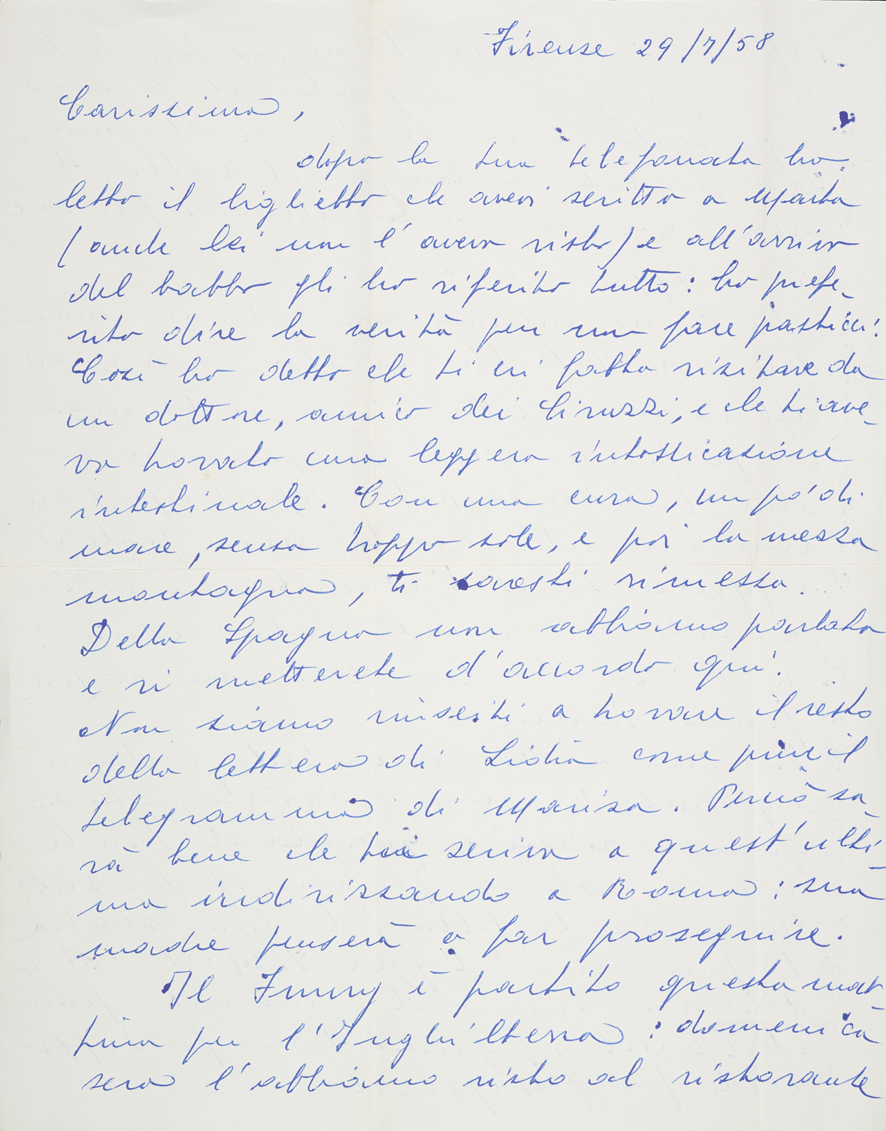 Firenze 29/7/58
Carissima,
dopo la tua telefonata ho
letto il biglietto che avevi scritto a Marta
(anche lei non l'aveva visto) e all'arrivo
del babbo gli ho riferito tutto: ho prefe-
rito dire la verità per non fare pasticci!
Così ho detto che ti eri fatta visitare da
un dottore, amico dei Ciruzzi, e che ti ave-
va trovato una leggera intossicazione
intestinale. Con una cura, un po' di
mare, senza troppo sole, e poi la mezza
montagna, ti saresti rimessa.
Della Spagna non abbiamo parlato
e vi metterete d'accordo qui.
Non siamo riusciti a trovare il resto
della lettera di Lidia come pure il
telegramma di Marisa. Perciò sa-
rà bene che tu scriva a quest'ulti-
ma indirizzando a Roma: sua
madre penserà a far proseguire.
Il Jimmy è partito questa mat-
tina per l'Inghilterra: domenica
sera l'abbiamo visto al ristorante